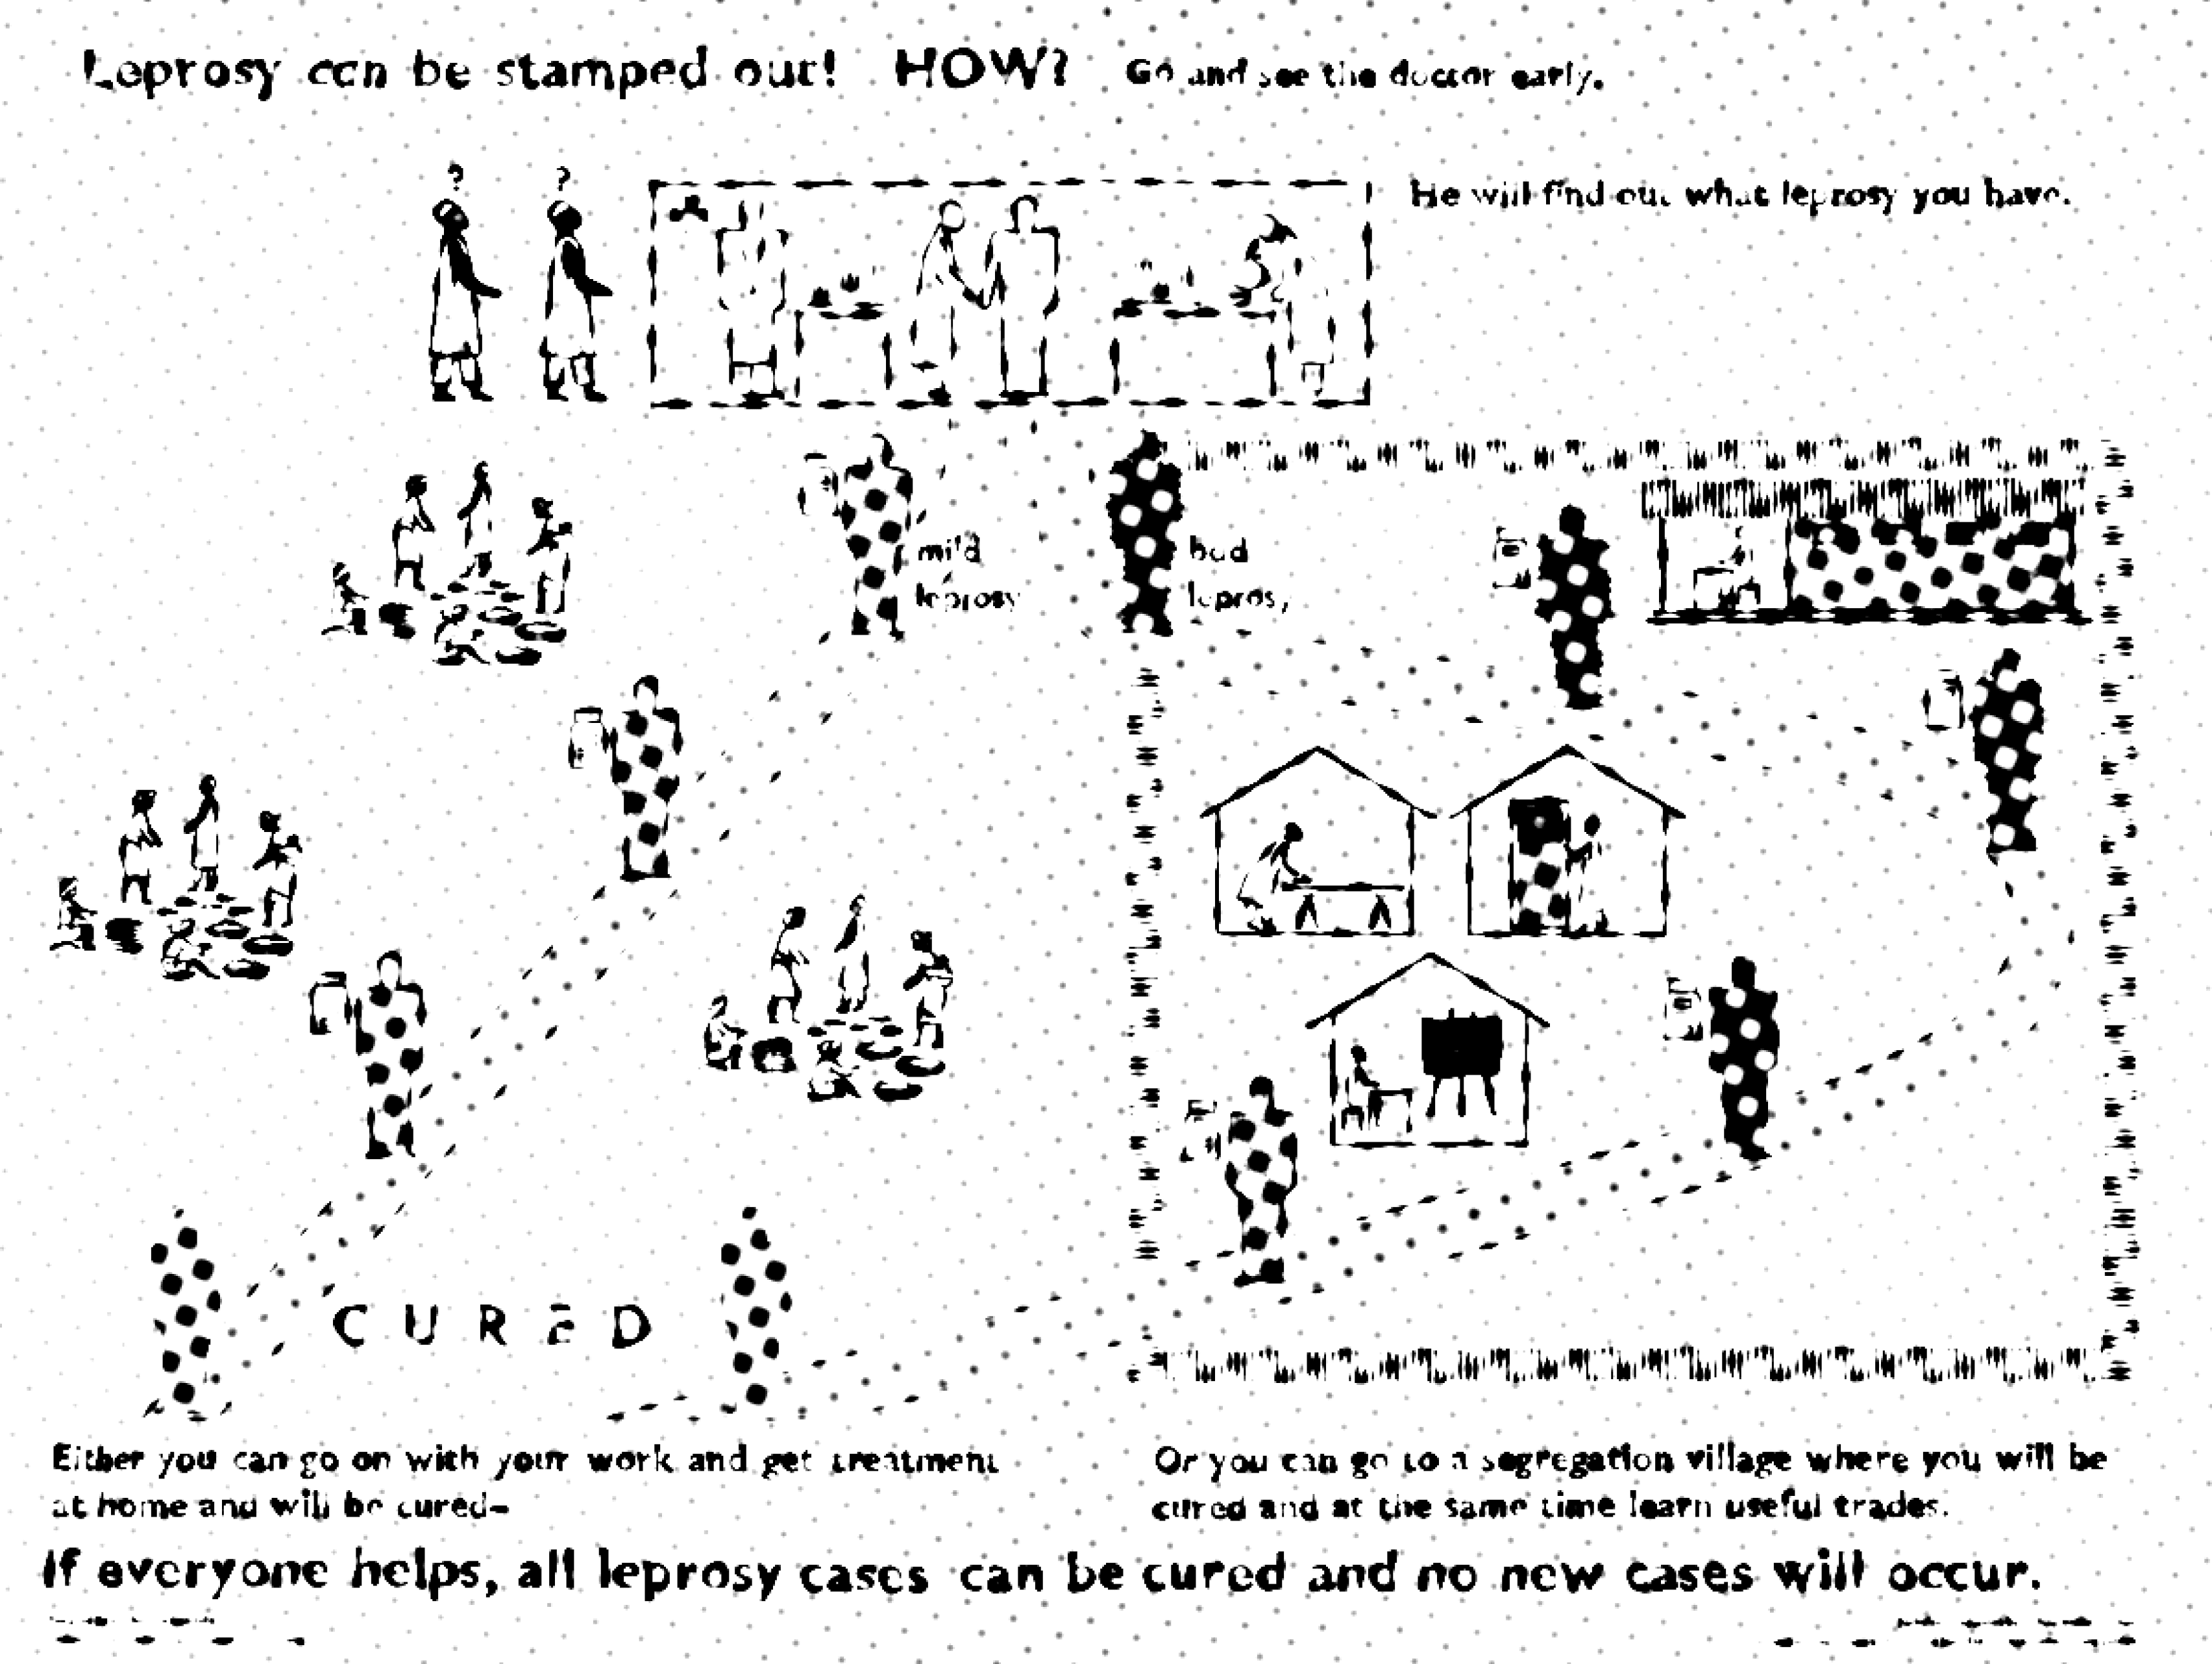 Leprosy can be stamped out! HOW? Go and see the doctor early.
He will find out what leprosy you have.
mild
leprosy
bad
leprosy
CURED
Either you can go on with your work and get treatment
at home and will be cured–
Or you can go to a segregation village where you will be
cured and at the same time learn useful trades.
If everyone helps, all leprosy cases can be cured and no new cases will occur.